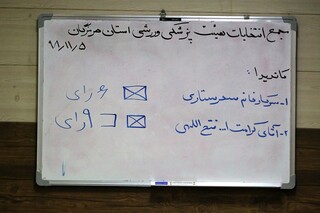 مجمع انتخابات هیئت پزشکی ورزشی استان هرمزگان
۹۸/۱۱/۵
کاندیدا :
۱- سرکار خانم سحر ستاری ۶ رای
۲- آقای کرامت ا... فتح اللهی ۹ رای